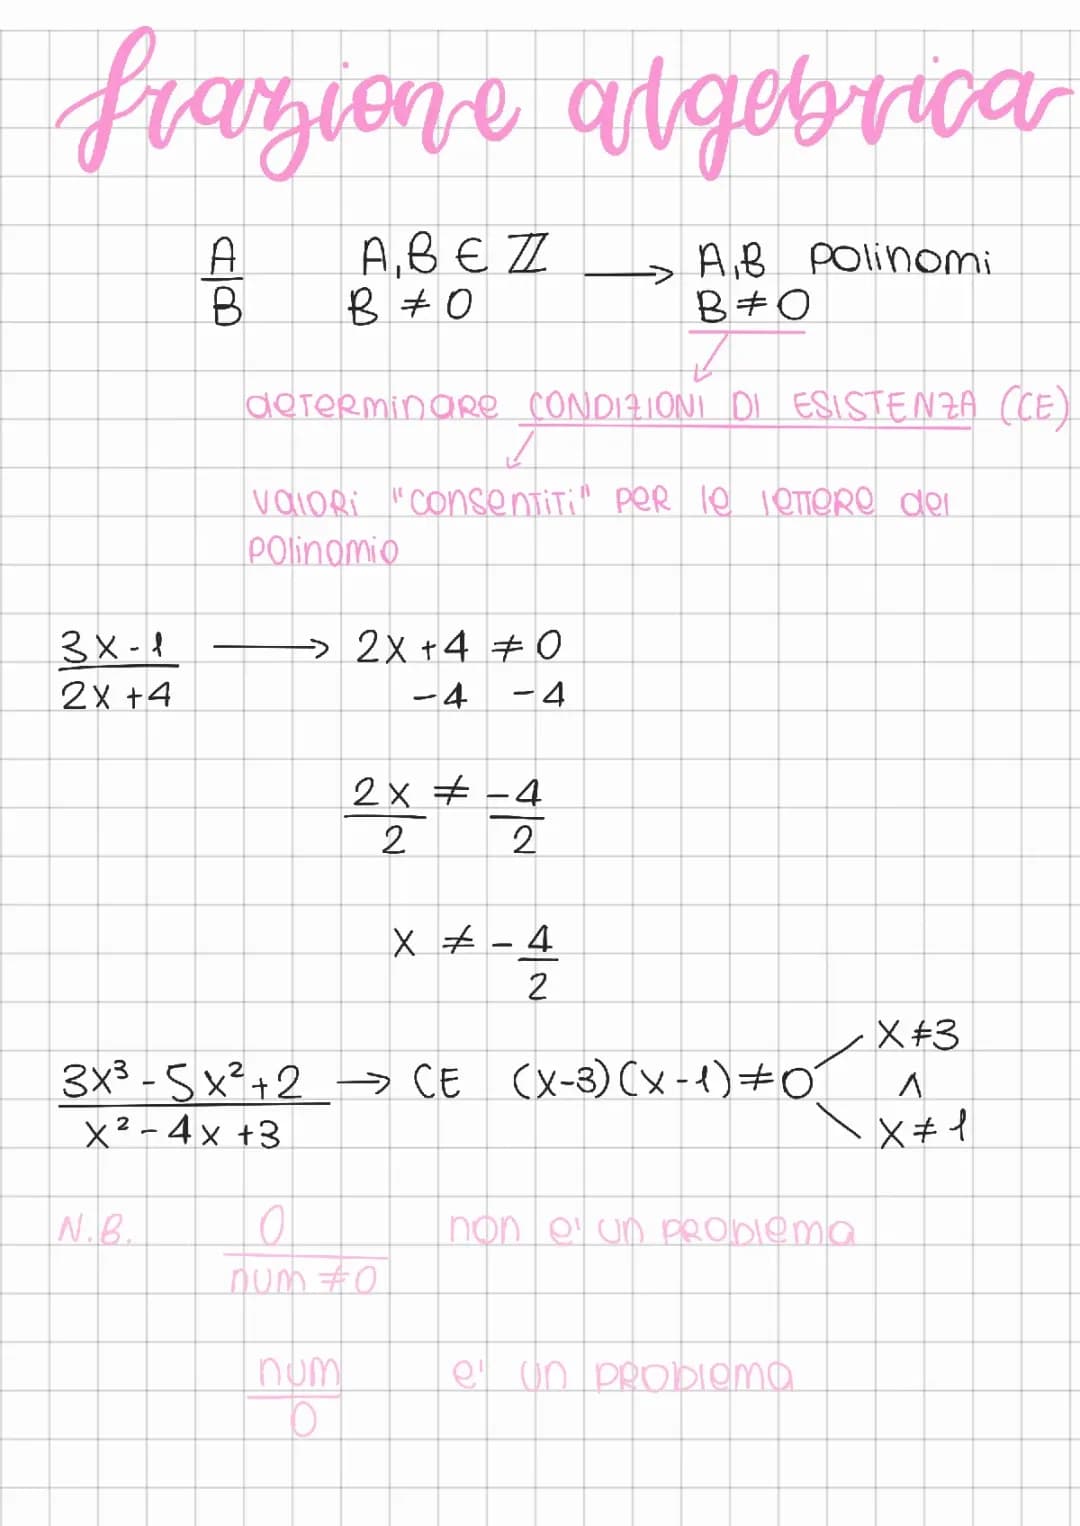 frazione algebrica
A/B A,B ∈ ℤ → A,B polinomi
B ≠ 0 B ≠ 0
determinare CONDIZIONI DI ESISTENZA (CE)
valori "consentiti" per le lettere del
polinomio
(3x-1)/(2x+4) → 2x+4 ≠ 0
-4 -4
2x/2 ≠ -4/2
x ≠ -4/2
x ≠ 3
(3x³-5x²+2)/(x²-4x+3) → CE (x-3)(x-1) ≠ 0 ∧
x ≠ 1
N.B. 0/(num ≠ 0) non e' un problema
num/0 e' un problema